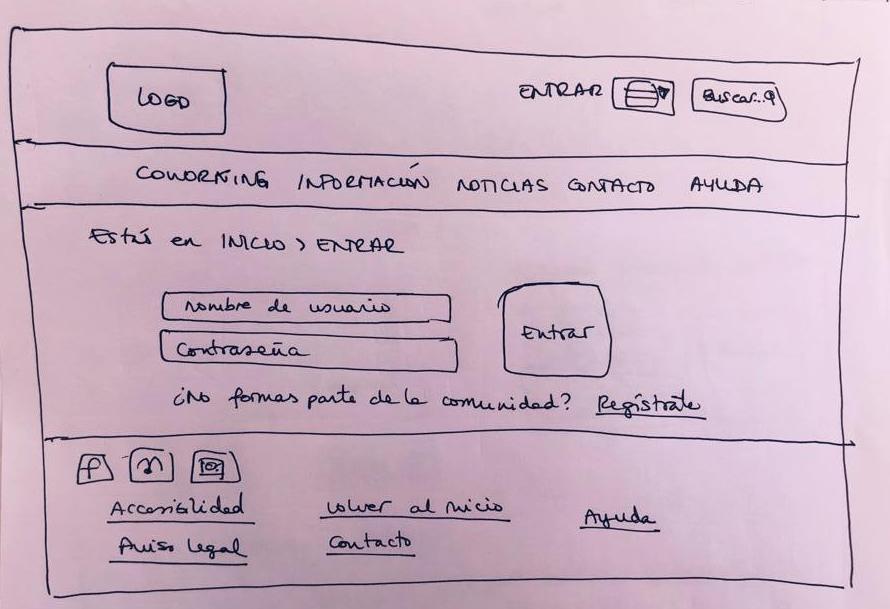 LOGO
ENTRAR Buscar...
COWORKING INFORMACIÓN NOTICIAS CONTACTO AYUDA
Estás en INICIO > ENTRAR
nombre de usuario
Contraseña
Entrar
¿No formas parte de la comunidad? Regístrate
f
Accesibilidad Volver al inicio Ayuda
Aviso Legal Contacto